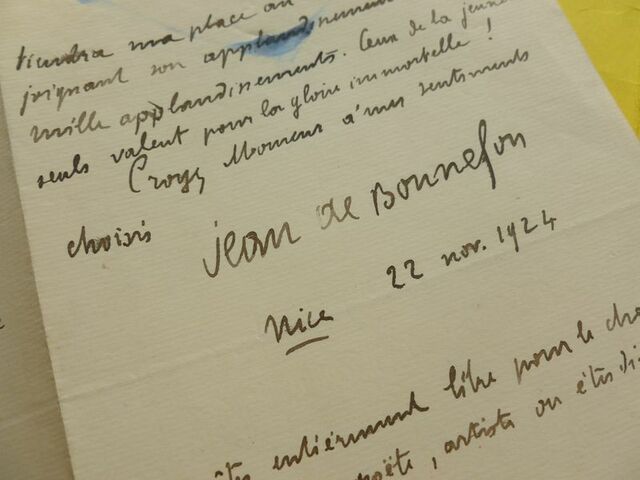 tiendra ma place au
joignant son applaudissement
mille applaudissements. Ceux de la jeune
seuls valent pour la gloire immortelle !
Croyez Monsieur à mes sentiments
choisis
Jean de Bonnefon
22 nov. 1924
Nice
entièrement libre pour le cho
poëte, artiste ou étudi